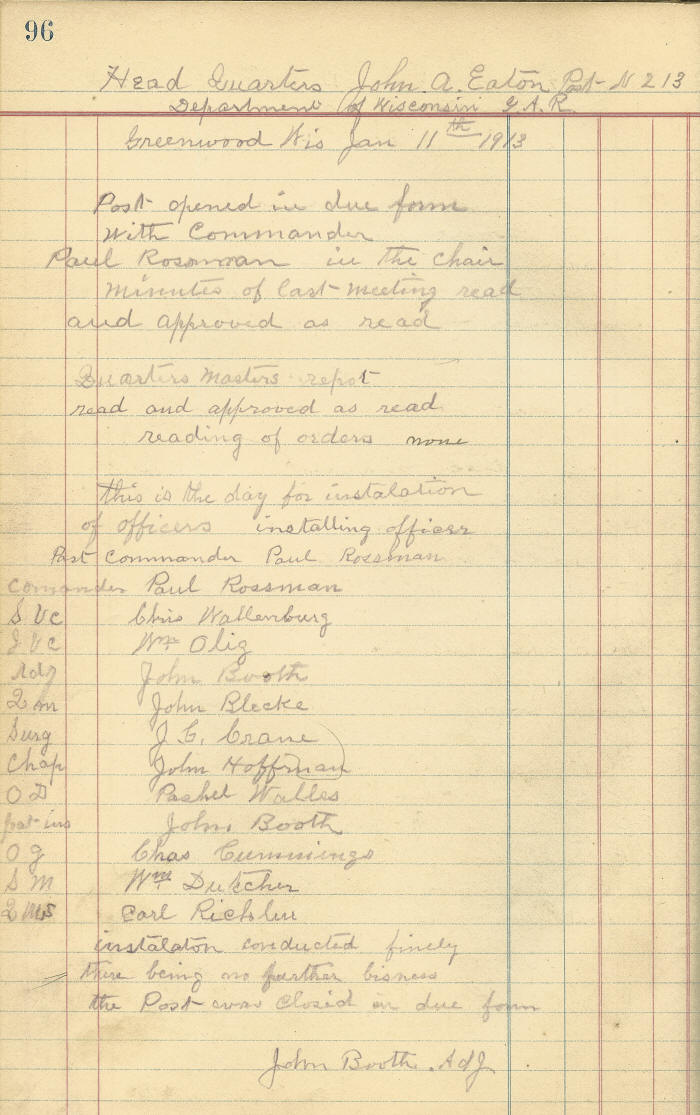 96
Head Quarters John. A. Eaton Post N 213
Department of Wisconsin G. A. R.
Greenwood Wis Jan 11th 1913
Post opened in due form
with Commander
Paul Rossman in the chair
minutes of last meeting read
and approved as read
Quarters Masters repot
read and approved as read
reading of orders none
this is the day for instalation
of officers installing officer
Past Commander Paul Rossman
comander Paul Rossman
S Vc Chris Wallenburg
J Vc Wm Olig
Adj John Booth
Q m John Blecke
Surg J. G. Crane
Chap John Hoffman
O D Pachel Walles
pat ins John. Booth
O g Chas Cummings
S M Wm Dutcher
Q M S Carl
instalaton conducted finely
there being no further bisness
the Post was Closid in due form
John Booth. Adj